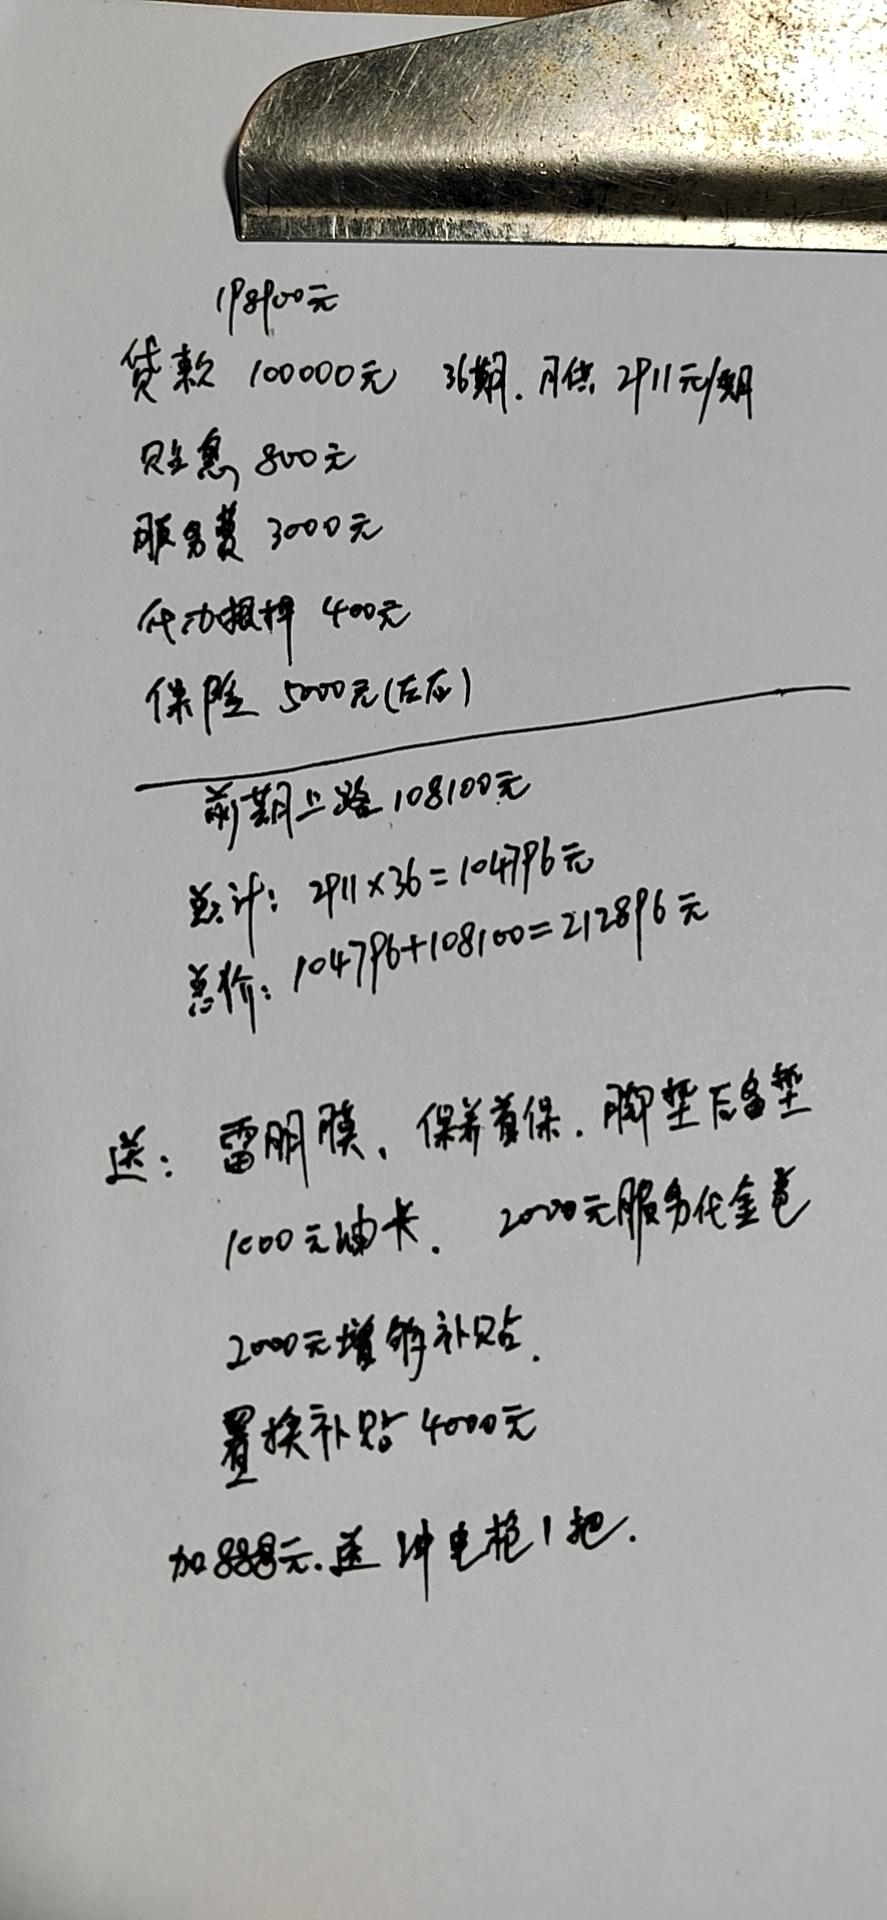 198900元
贷款 100000元 36期. 月供 2911元/期
贴息 800元
服务费 3000元
代办报牌 400元
保险 5000元(左右)
前期上路 108100元
总计: 2911×36=104796元
总价: 104796+108100=212896元
送: 雷朋膜、保养首保. 脚垫后备垫
1000元油卡. 2000元服务代金卷
2000元增购补贴.
置换补贴 4000元
加888元.送 冲电枪1把.